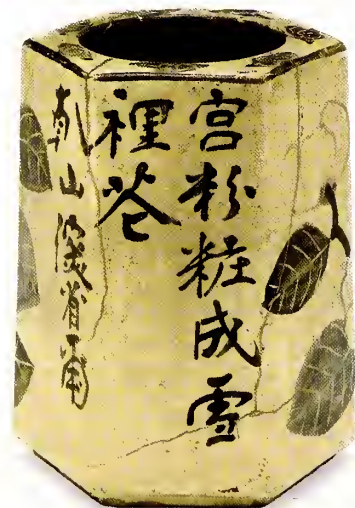 宮粉粧成雪
裡花
乾山深省画